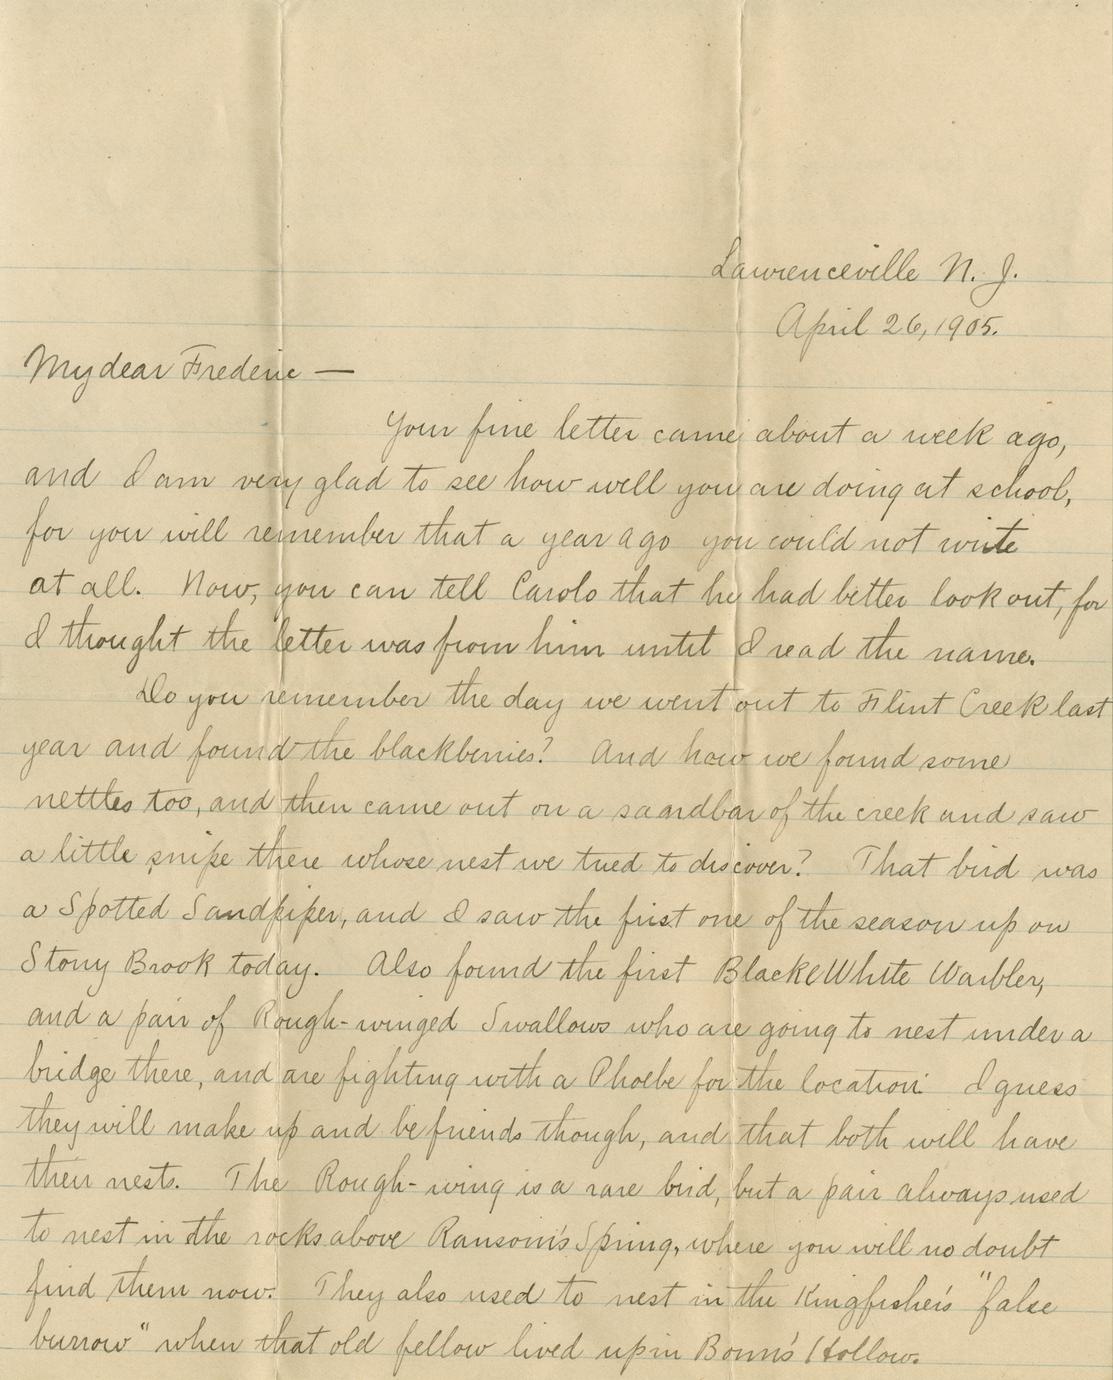 Lawrenceville N. J.
April 26, 1905.
My dear Frederic —
Your fine letter came about a week ago,
and I am very glad to see how well you are doing at school,
for you will remember that a year ago you could not write
at all. Now, you can tell Carolo that he had better look out, for
I thought the letter was from him until I read the name.
Do you remember the day we went out to Flint Creek last
year and found the blackberries? And how we found some
nettles too, and then came out on a saandbar of the creek and saw
a little snipe there whose nest we tried to discover? That bird was
a Spotted Sandpiper, and I saw the first one of the season up on
Stony Brook today. Also found the first Black & White Warbler,
and a pair of Rough-winged Swallows who are going to nest under a
bridge there, and are fighting with a Phoebe for the location. I guess
they will make up and be friends though, and that both will have
their nests. The Rough-wing is a rare bird, but a pair always used
to nest in the rocks above Ransom's Spring, where you will no doubt
find them now. They also used to nest in the Kingfisher's "false
burrow" when that old fellow lived up in Bonn's Hollow.